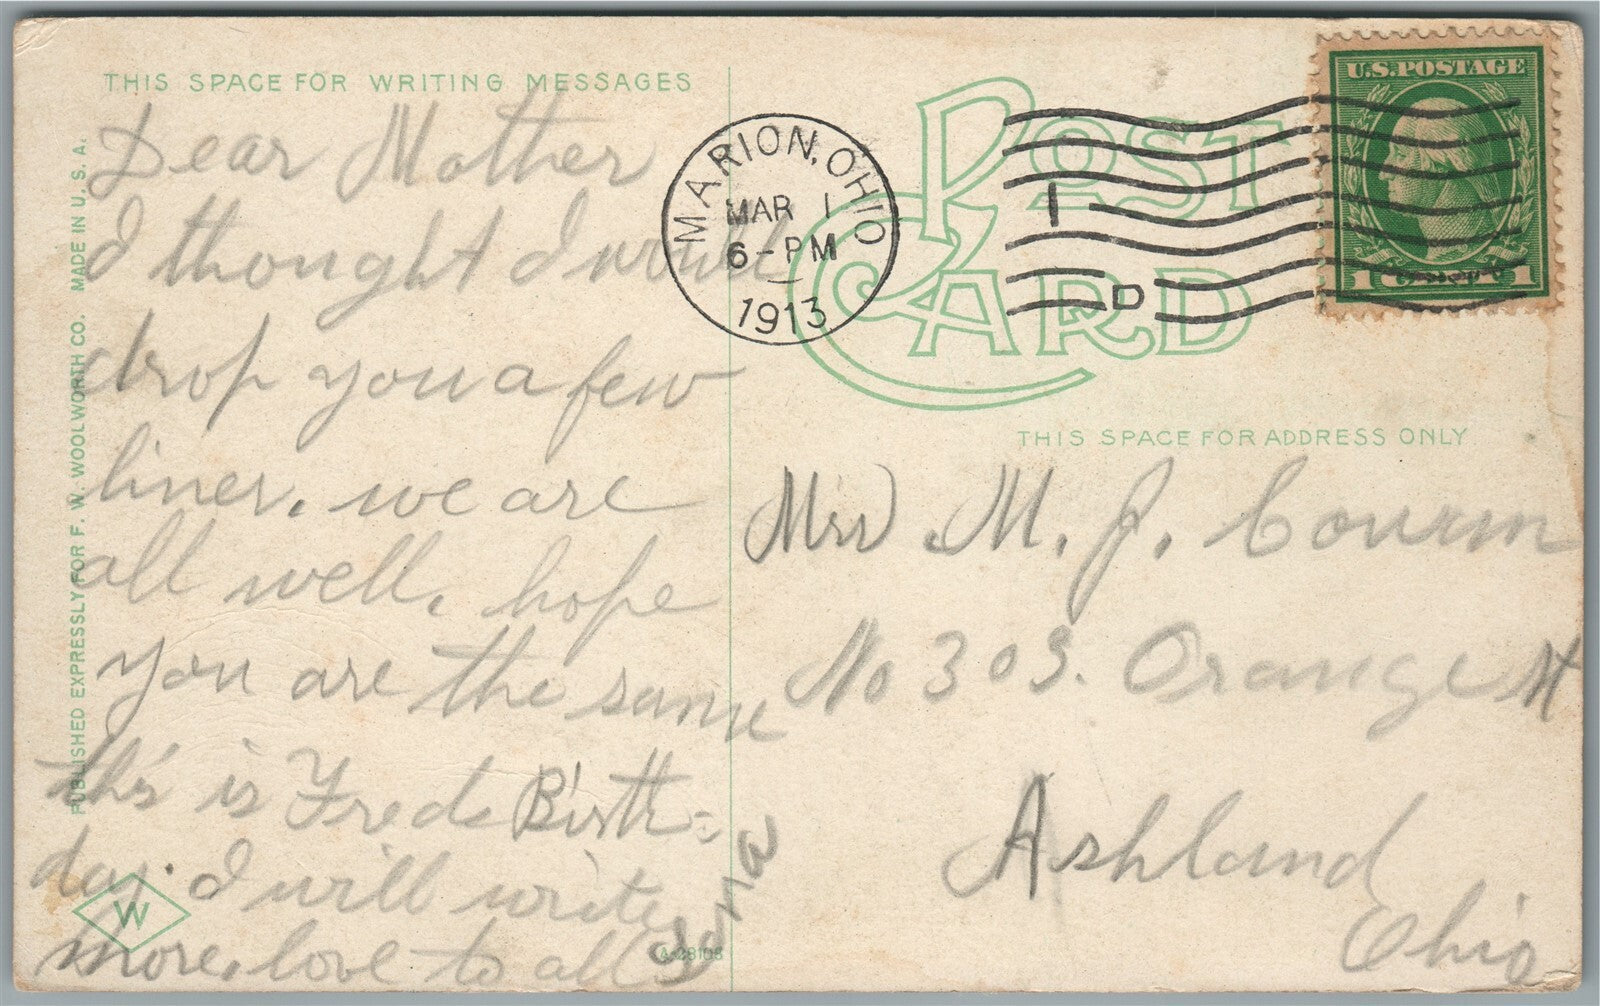 THIS SPACE FOR WRITING MESSAGES
Dear Mother
I thought I would
drop you a few
lines, we are
all well, hope
you are the same
this is Freds Birth-
day. I will write
more, love to all
PUBLISHED EXPRESSLY FOR F. W. WOOLWORTH CO. MADE IN U. S. A.
W
A-28108
MARION, OHIO
MAR 1
6-PM
1913
1
D
POST CARD
U.S. POSTAGE
1 1
THIS SPACE FOR ADDRESS ONLY
Mrs. M. J.
No 303. Orange St
Ashland
Ohio